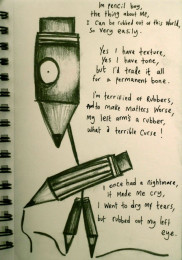 In pencil bag,
the thing about me,
I can be rubbed out of this world,
So very easily.
Yes I have texture,
Yes I have tone,
but I'd trade it all
for a permanent bone.
I'm terrified of Rubbers,
and to make matters worse,
My left arm's a rubber,
what a terrible curse!
I once had a nightmare,
it made me cry,
I went to dry my tears,
but rubbed out my left
eye.